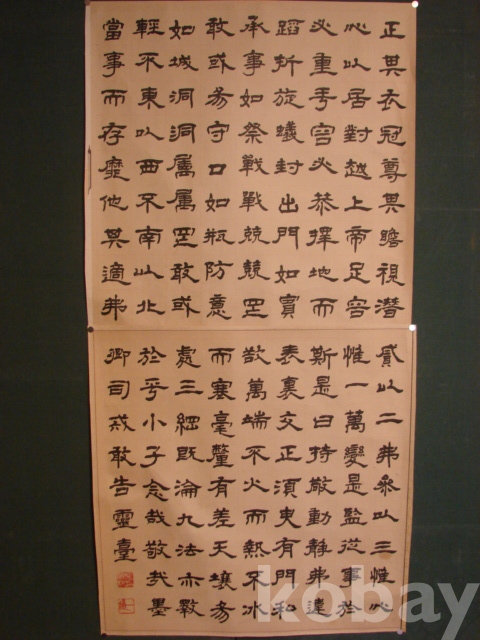 正其衣冠尊其瞻視潛
心以居對越上帝足容
必重手容必恭擇地而
蹈折旋蟻封出門如賓
承事如祭戰戰兢兢罔
敢或易守口如瓶防意
如城洞洞屬屬罔敢或
輕不東以西不南以北
當事而存靡他其適弗
貳以二弗參以三惟心
惟一萬變是監從事於
斯是曰持敬動靜弗違
表裏交正須臾有間私
欲萬端不火而熱不冰
而寒毫釐有差天壤易
處三綱既淪九法亦斁
於乎小子念哉敬哉墨
卿司戒敢告靈臺
kobay